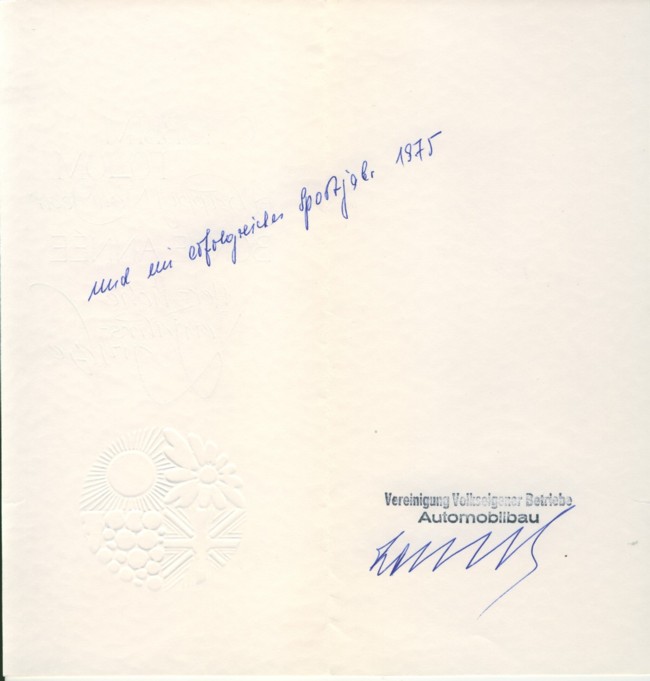 und ein erfolgreiches Sportjahr 1975
Vereinigung Volkseigener Betriebe
Automobilbau